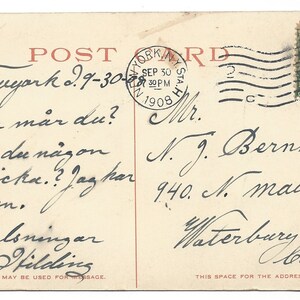 POST CARD
NEW YORK, N.Y. STA. H
SEP 30
30 PM
1908
2
C
9-30-08
mår du?
du någon
icka.? Jag har
en.
lsningar
Hilding
MAY BE USED FOR MESSAGE.
Mr.
N. J. Bern
940. N. mai
Waterbury
THIS SPACE FOR THE ADDRE